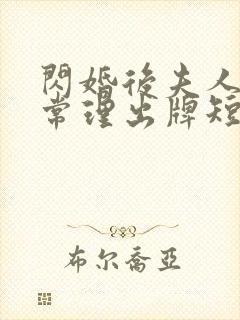 閃婚後夫人
常理出牌短
布尔喬亞